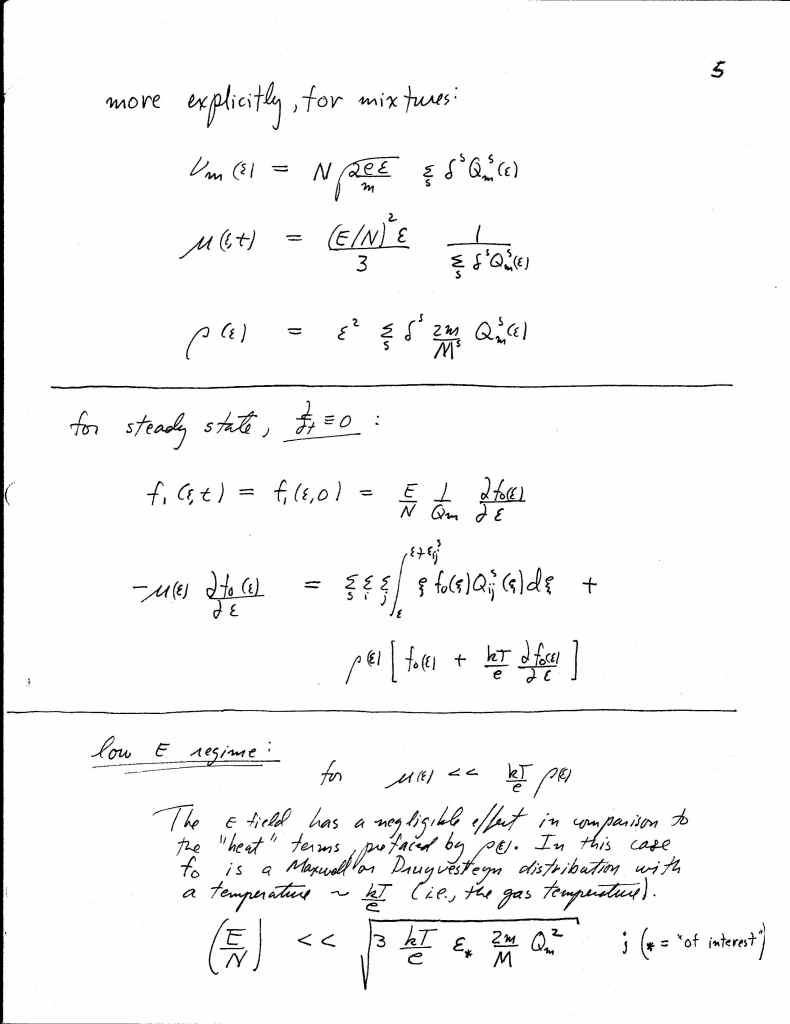 5
more explicitly, for mixtures:
νm(ε) = N √(2eε/m) Σ_s δ^s Q_m^s(ε)
μ(ε,t) = (E/N)² ε / 3 · 1 / Σ_s δ^s Q_m^s(ε)
ρ(ε) = ε² Σ_s δ^s 2m/M^s Q_m^s(ε)
for steady state, ∂/∂t ≡ 0 :
f₁(ε,t) = f₁(ε,0) = E/N 1/Qm ∂f₀(ε)/∂ε
-μ(ε) ∂f₀(ε)/∂ε = Σ_s Σ_i Σ_j ∫_ε^{ε+ε_ij^s} ξ f₀(ξ) Q_ij^s(ξ) dξ +
ρ(ε) [ f₀(ε) + kT/e ∂f₀(ε)/∂ε ]
low E regime:
for μ(ε) << kT/e ρ(ε)
The E field has a negligible effect in comparison to
the "heat" terms, prefaced by ρ(ε). In this case
f₀ is a Maxwell or Druyvesteyn distribution with
a temperature ~ kT/e (i.e., the gas temperature).
(E/N) << √(3 kT/e ε* 2m/M Qm²) ; (* = "of interest")